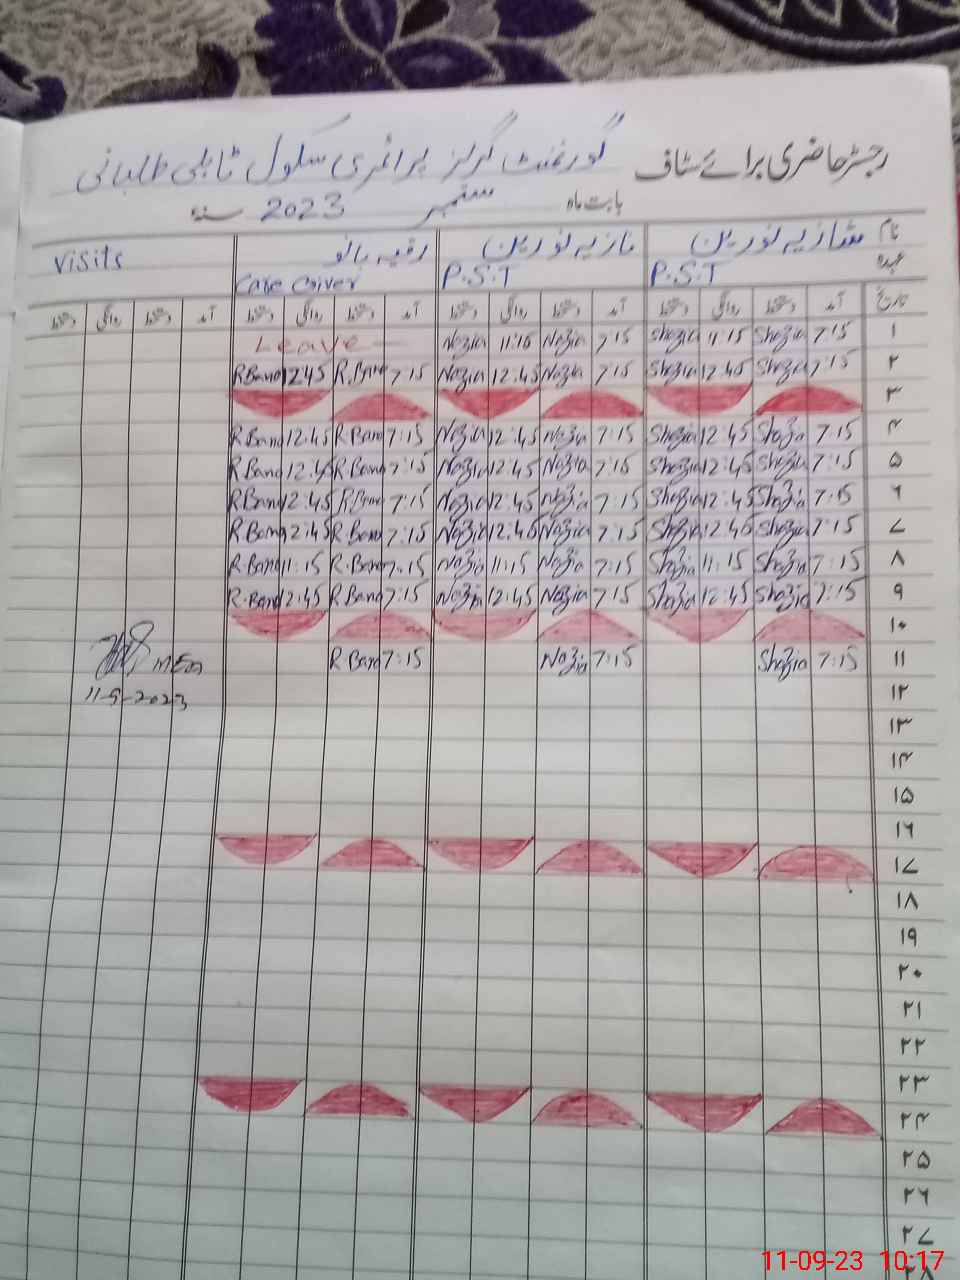 رجسٹر حاضری برائے سٹاف گورنمنٹ گرلز پرائمری سکول ٹاہلی طلبانی
بابت ماہ ستمبر 2023 سنہ
نام شازیہ نورین نازیہ نورین رقیہ بانو Visits
عہدہ P.S.T P.S.T Care Giver
تاریخ آمد دستخط روانگی دستخط آمد دستخط روانگی دستخط آمد دستخط روانگی دستخط آمد دستخط روانگی دستخط
۱ 7:15 Shazia 11:15 Shazia 7:15 Nazia 11:15 Nazia Leave
۲ 7:15 Shazia 12:45 Shazia 7:15 Nazia 12:45 Nazia 7:15 R.Bano 12:45 R.Bano
۳
۴ 7:15 Shazia 12:45 Shazia 7:15 Nazia 12:45 Nazia 7:15 R.Bano 12:45 R.Bano
۵ 7:15 Shazia 12:45 Shazia 7:15 Nazia 12:45 Nazia 7:15 R.Bano 12:45 R.Bano
۶ 7:15 Shazia 12:45 Shazia 7:15 Nazia 12:45 Nazia 7:15 R.Bano 12:45 R.Bano
۷ 7:15 Shazia 12:45 Shazia 7:15 Nazia 12:45 Nazia 7:15 R.Bano 12:45 R.Bano
۸ 7:15 Shazia 11:15 Shazia 7:15 Nazia 11:15 Nazia 7:15 R.Bano 11:15 R.Bano
۹ 7:15 Shazia 12:45 Shazia 7:15 Nazia 12:45 Nazia 7:15 R.Bano 12:45 R.Bano
۱۰
۱۱ 7:15 Shazia 7:15 Nazia 7:15 R.Bano MEA
۱۲ 11-9-2023
۱۳
۱۴
۱۵
۱۶
۱۷
۱۸
۱۹
۲۰
۲۱
۲۲
۲۳
۲۴
۲۵
۲۶
۲۷
۲۸
11-09-23 10:17